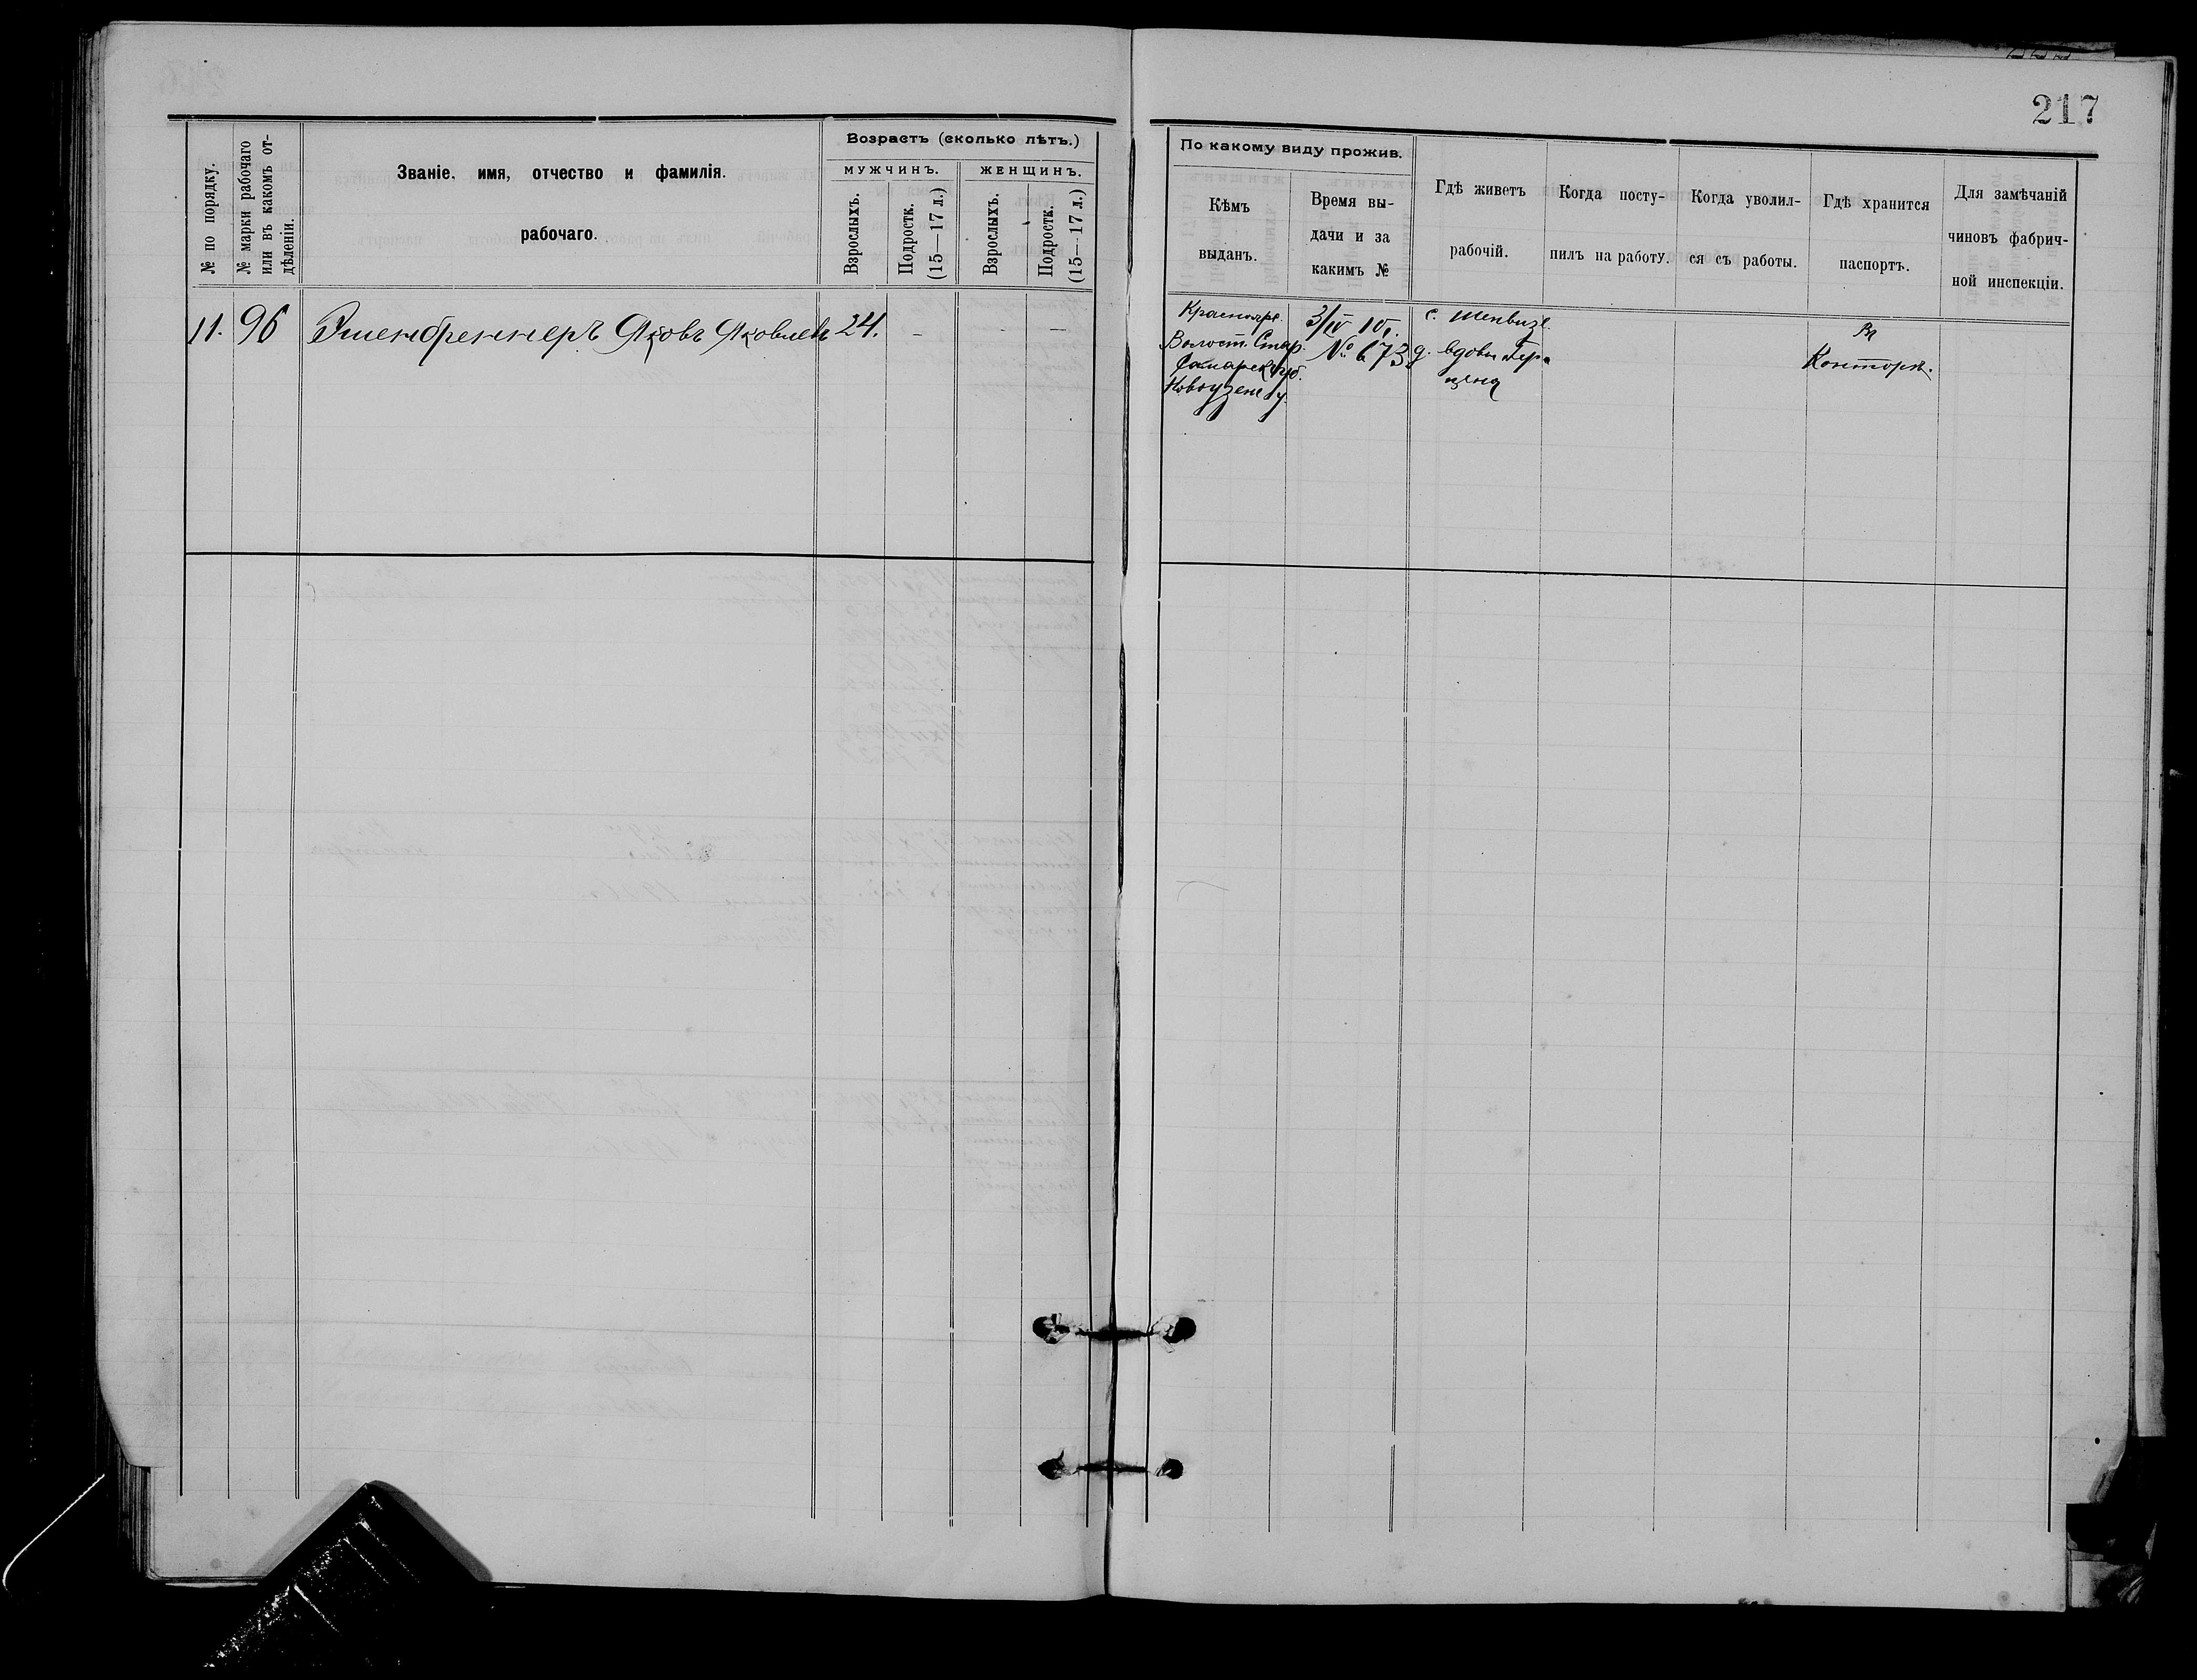 217
№ по порядку.
№ марки рабочаго
или въ какомъ от-
дѣленіи.
Званіе, имя, отчество и фамилія.
рабочаго.
Возрастъ (сколько лѣтъ.)
МУЖЧИНЪ.
ЖЕНЩИНЪ.
Взрослыхъ.
Подростк.
(15—17 л.)
Взрослыхъ.
Подростк.
(15—17 л.)
По какому виду прожив.
Кѣмъ
выданъ.
Время вы-
дачи и за
какимъ №
Гдѣ живетъ
рабочій.
Когда посту-
пилъ на работу.
Когда уволил-
ся съ работы.
Гдѣ хранится
паспортъ.
Для замѣчаній
чиновъ фабрич-
ной инспекціи.
11. 96 Яковъ Яковлевъ 24. – – –
Краснояр.
Волост. Стар.
Самарск. губ.
Новоузенс. у.
3/IV 10 г.
№ 673
с.
д. вдовы Гер-
цена
Въ
Конторѣ.